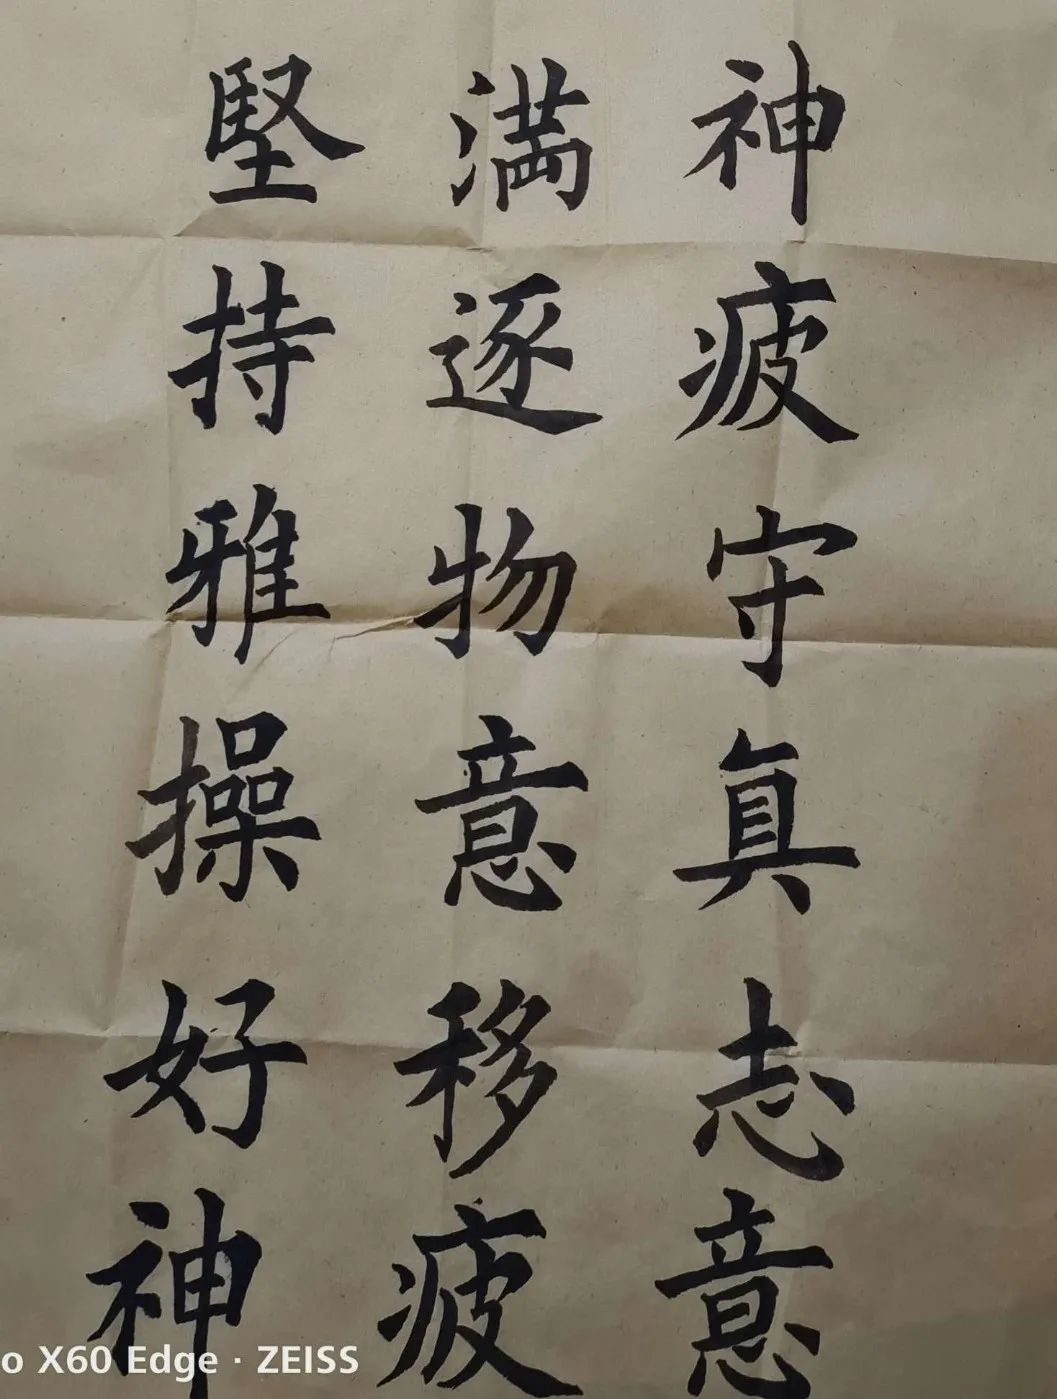 神疲守真志意
満逐物意移疲
堅持雅操好神
o X60 Edge · ZEISS